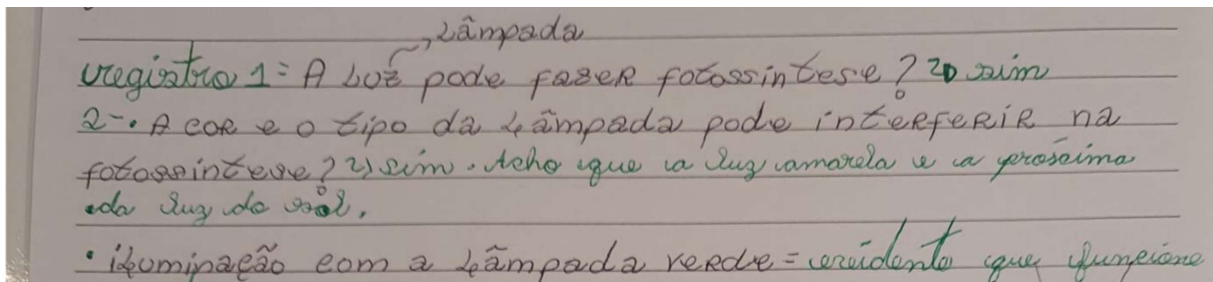 Lâmpada
registro 1 = A Luz pode fazer fotossíntese? R sim
2-. A cor e o tipo da Lâmpada pode interferir na
fotossíntese? R sim. Acho que a luz amarela e a proseima
da luz do sol.
• iluminação com a Lâmpada verde = evidente que funcione